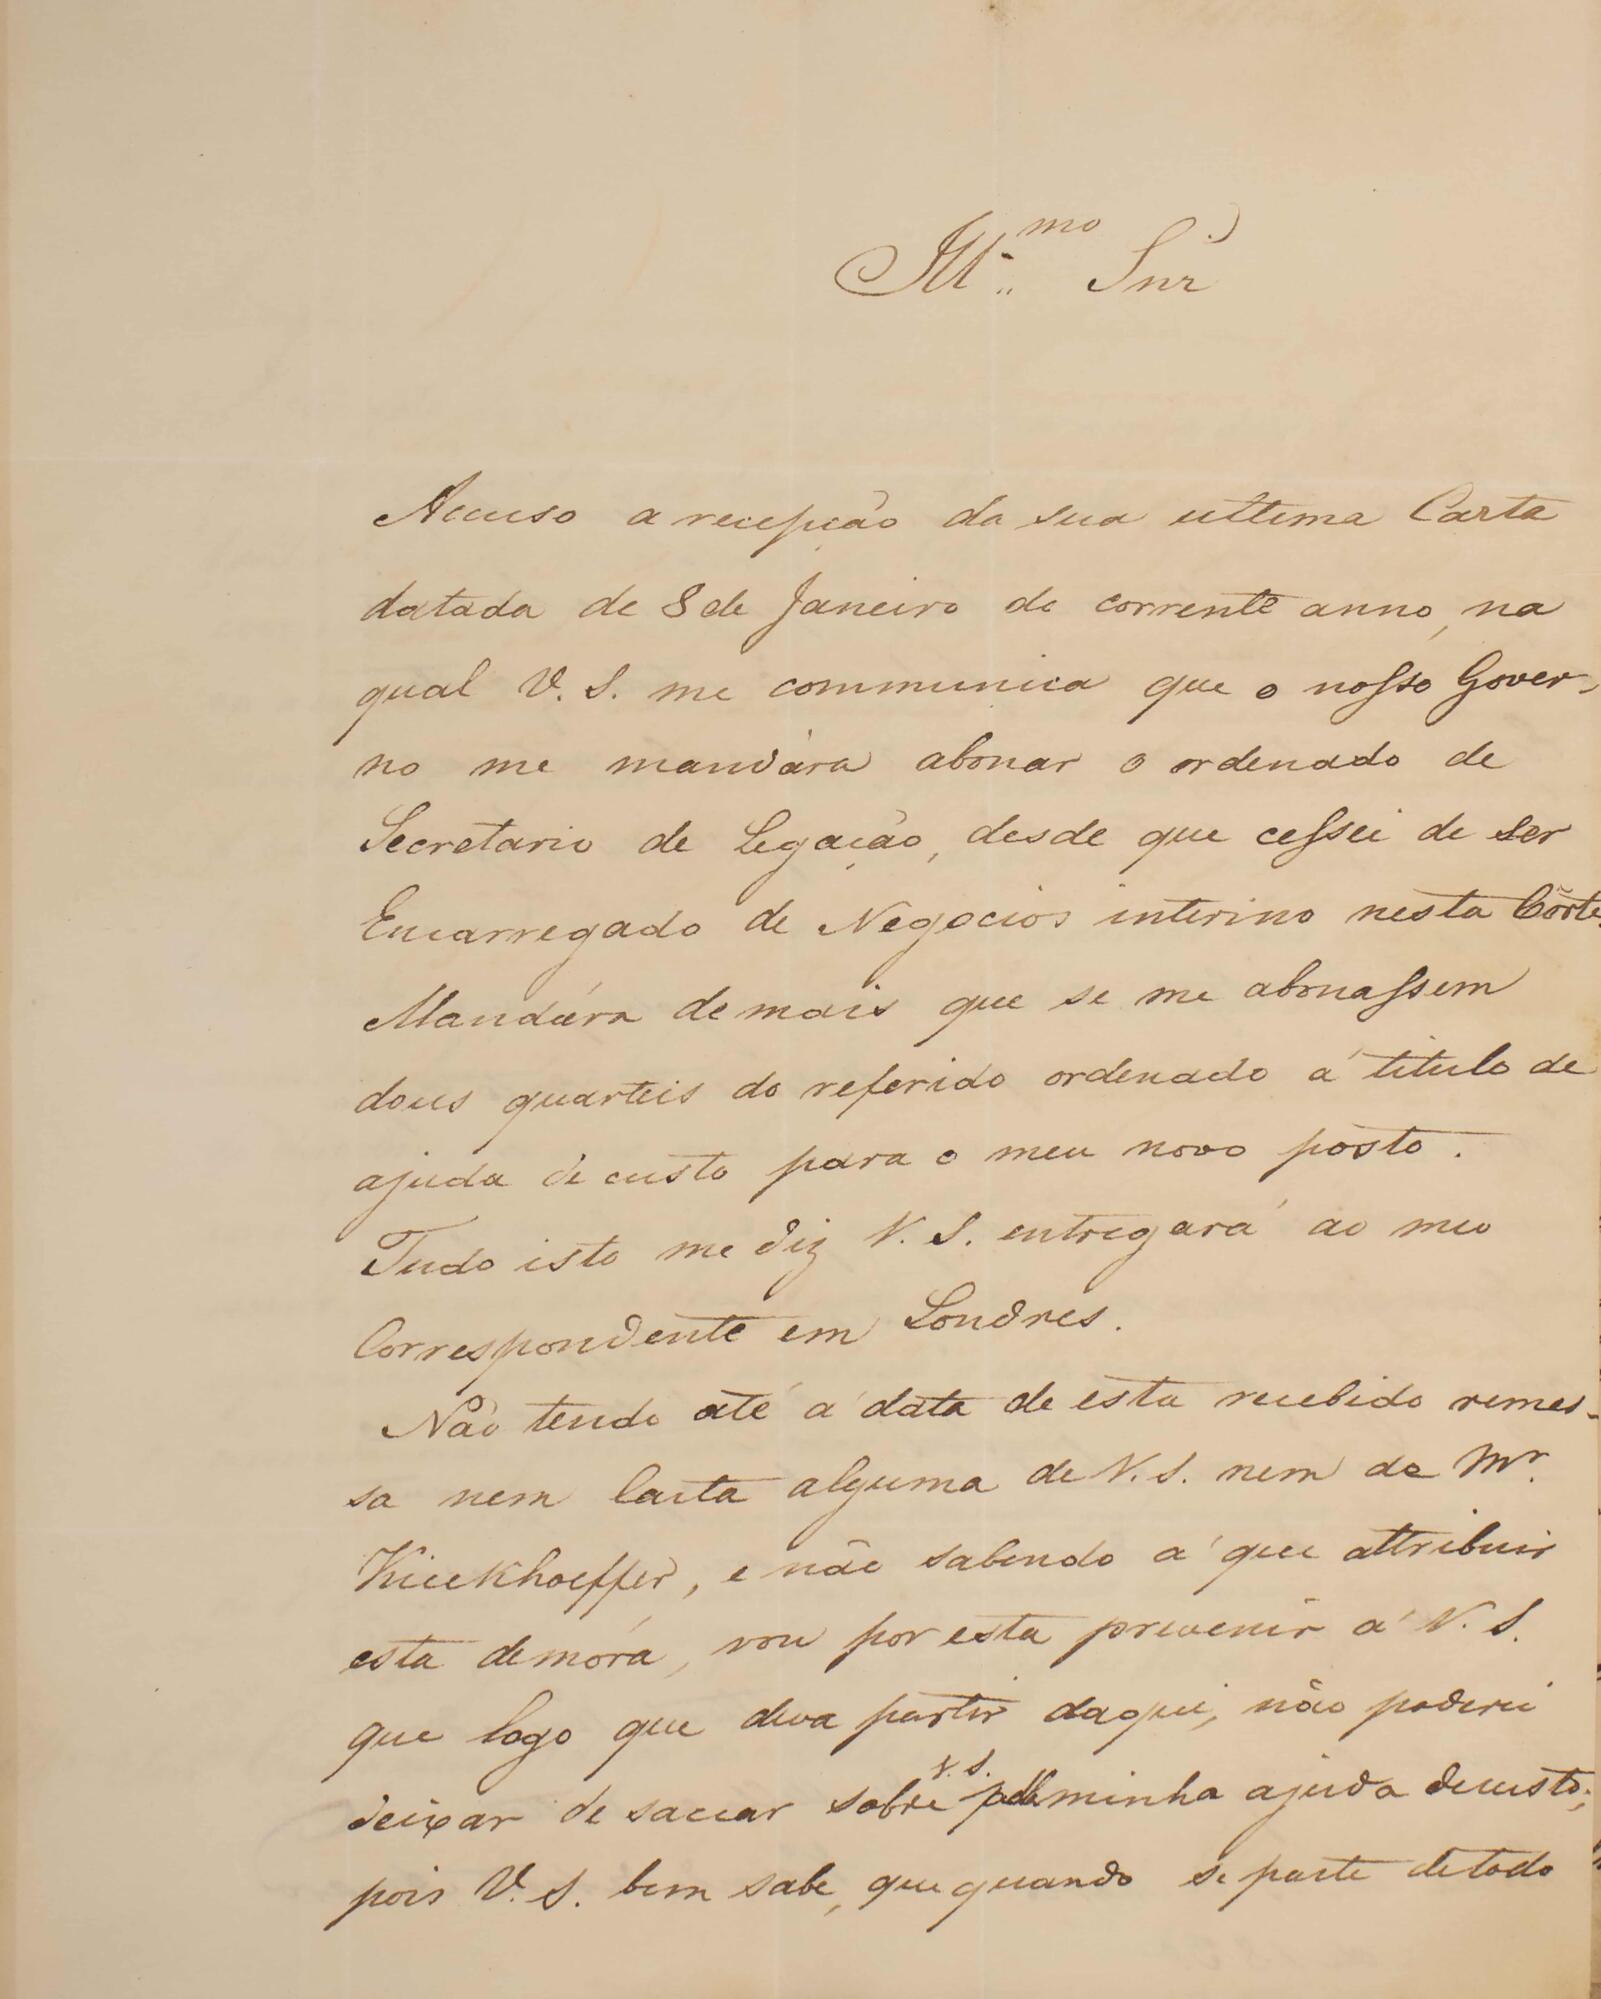 Ill.mo Snr
Accuso a recepção da sua ultima Carta
datada de 8 de Janeiro do corrente anno, na
qual V. S. me communica que o nosso Gover-
no me mandára abonar o ordenado de
Secretario de Legação, desde que cessei de ser
Encarregado de Negocios interino nesta Côrte.
Mandára demais que se me abonassem
dous quarteis do referido ordenado á titulo de
ajuda de custo para o meu novo posto.
Tudo isto me diz V. S. entregará ao meu
Correspondente em Londres.
Não tendo até á data de esta recebido remes-
sa nem Carta alguma de V. S. nem de Mr.
Kieckhoeffer, e não sabendo á que attribuir
esta demóra, vou por esta prevenir á V. S.
que logo que deva partir daqui, não poderei
deixar de saccar sobre V. S. pela minha ajuda de custo;
pois V. S. bem sabe, que quando se parte de todo